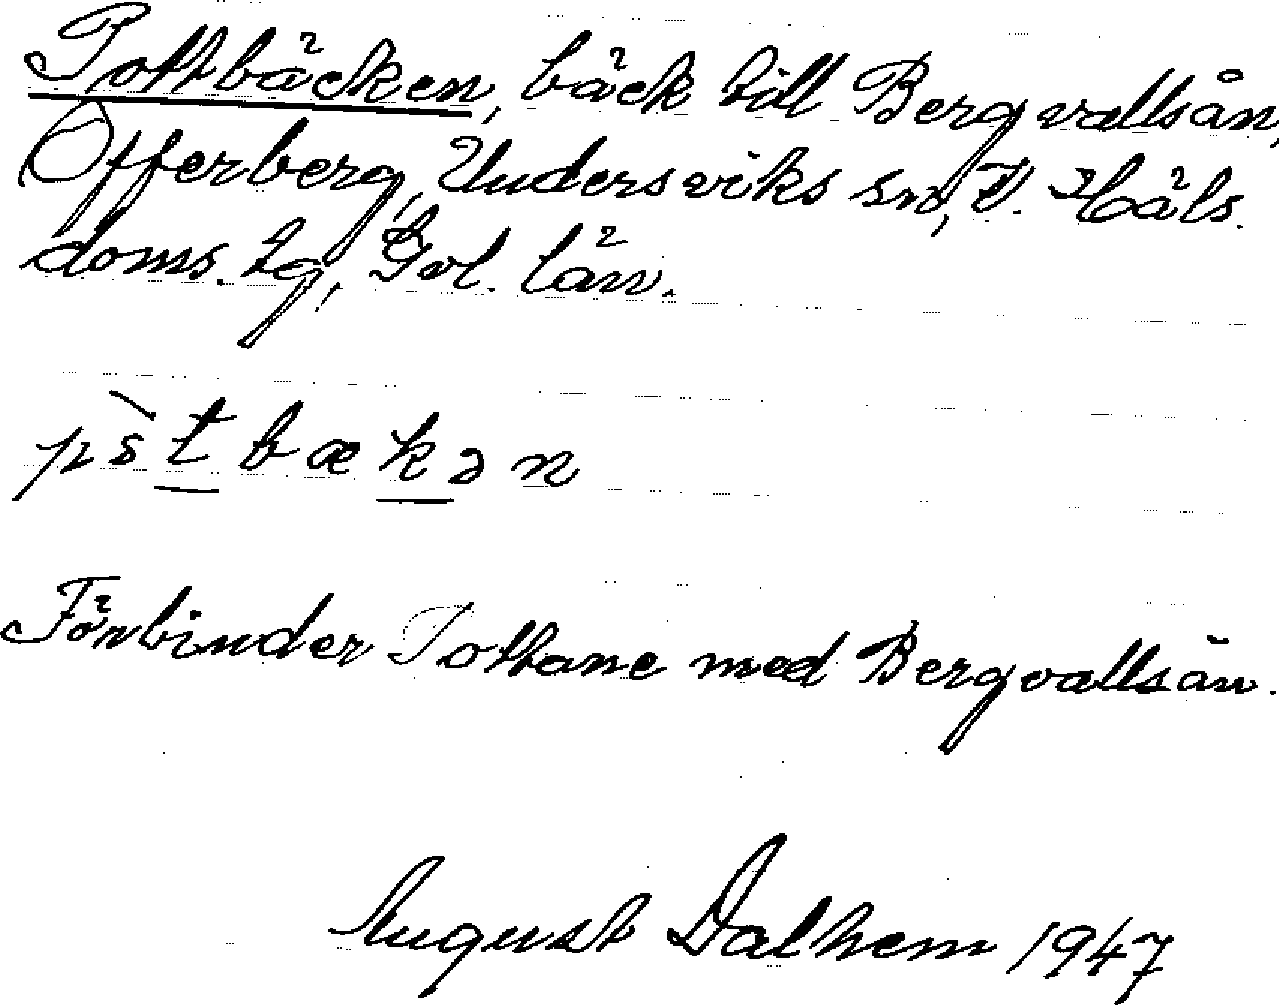 Pottbäcken, bäck till Bergvallsån,
Offerberg, Undersviks sn, V. Häls.
doms. tg, Gvl. län.
pòtbækən
Förbinder Pottane med Bergvallsån.
August Dalhem 1947